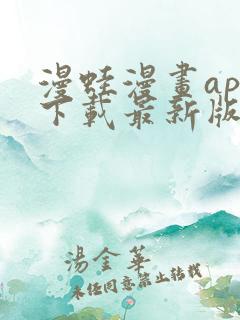 漫蛙漫畫ap
下載最新版
湯金華
未經同意禁止轉載